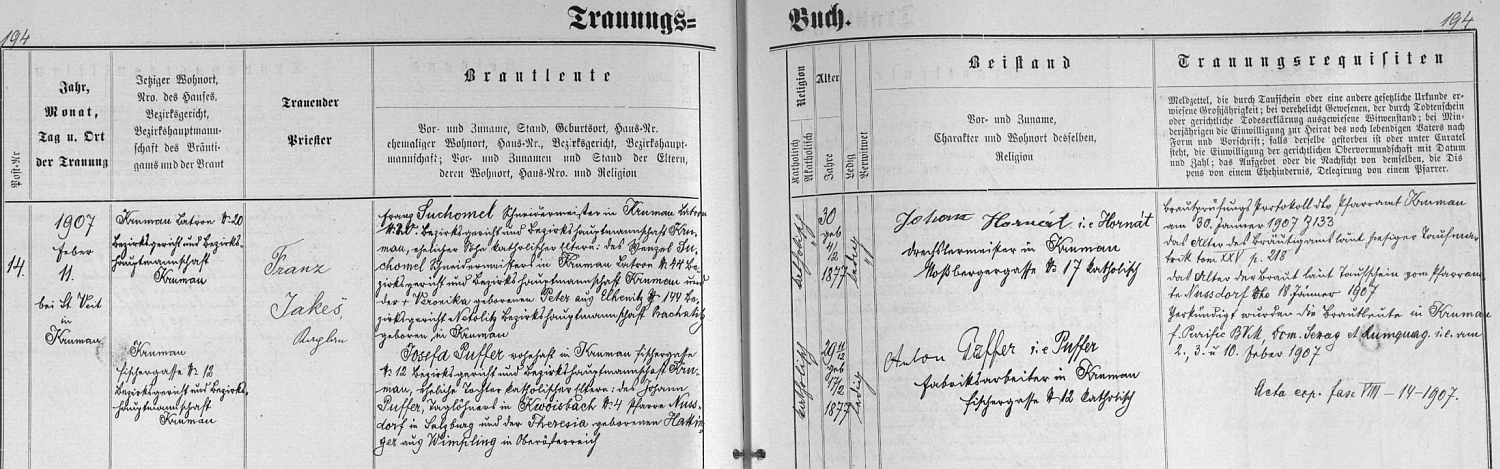 194
Trauungs=
Buch.
194
Post-Nr
Jahr,
Monat,
Tag u. Ort
der Trauung
Jetziger Wohnort,
Nro. des Hauses,
Bezirksgericht,
Bezirkshauptmann-
schaft des Bräuti-
gams und der Braut
Trauender
Priester
Brautleute
Vor- und Zuname, Stand, Geburtsort, Haus-Nr.
ehemaliger Wohnort, Haus-Nr., Bezirksgericht, Bezirkshaupt-
mannschaft; Vor- und Zunamen und Stand der Eltern,
deren Wohnort, Haus-Nro. und Religion
Religion
Katholisch
Akatholisch
Alter
Jahre
Ledig
Verwitwet
Beistand
Vor- und Zuname,
Charakter und Wohnort desselben,
Religion
Trauungsrequisiten
Meldzettel, die durch Taufschein oder eine andere gesetzliche Urkunde er-
wiesene Großjährigkeit; bei verehelicht Gewesenen, der durch Todtenschein
oder gerichtliche Todeserklärung ausgewiesene Witwenstand; bei Min-
derjährigen die Einwilligung zur Heirat des noch lebendigen Vaters nach
Form und Vorschrift; falls derselbe gestorben ist oder unter Curatel
steht, die Einwilligung der gerichtlichen Obervormundschaft mit Datum
und Zahl; das Aufgebot oder die Nachsicht von demselben, die Dis
pens von einem Ehehindernis, Delegirung von einem Pfarrer.
14.
1907
Feber
11.
bei St Veit
in
Krumau
Krumau Latron № 20
Bezirksgericht und Bezirks-
hauptmannschaft
Krumau
Krumau
Fischergasse № 12
Bezirksgericht und Bezirks-
hauptmannschaft
Krumau
Franz
Jakeš,
Kaplan
Franz Suchomel Schneidermeister in Krumau Latron
№ 20. Bezirksgericht und Bezirkshauptmannschaft Kru-
mau, ehelicher Sohn katholischer Eltern: des Wenzel Su-
chomel Schneidermeisters in Krumau Latron № 44 Be-
zirksgericht und Bezirkshauptmannschaft Krumau und
der + Veronika geborenen Peter aus Elhenitz № 144 Be-
zirksgericht Netolitz Bezirkshauptmannschaft Prachatitz
geboren in Krumau
Josefa Puffer wohnhaft in Krumau Fischergasse
№ 12 Bezirksgericht und Bezirkshauptmannschaft Kru-
mau, eheliche Tochter katholischer Eltern: des Johann
Puffer, Taglöhners in № 4 Pfarre Nuss-
dorf in Salzburg und der Theresia geborenen
ger aus Wimpling in Oberösterreich
katholisch
30
geb
4/
12
1877
ledig
katholisch
29 11/12
geb
17/2
1877
ledig
Johann Hornát i.e Hornát
Drechslermeister in Krumau
№ 17 katholisch
Anton Päffer i.e Puffer
Fabriksarbeiter in Krumau
Fischergasse № 12 katholisch
Brautprüfungs Protokoll dto Pfarramt Krumau
am 30. Jänner 1907 Z 133
das Alter des Bräutigams laut hiesiger Taufma-
trik tom XXV p. 218
das Alter der Braut laut Taufschein vom Pfarram-
te Nussdorf dto 18. Jänner 1907
Verkündigt wurden die Brautleute in Krumau
f. Purific BVM, Dom. Sexag et Quinquag i.e. am
2., 3. u 10. Feber 1907
Acta cop. fasc VIII – 14 – 1907.